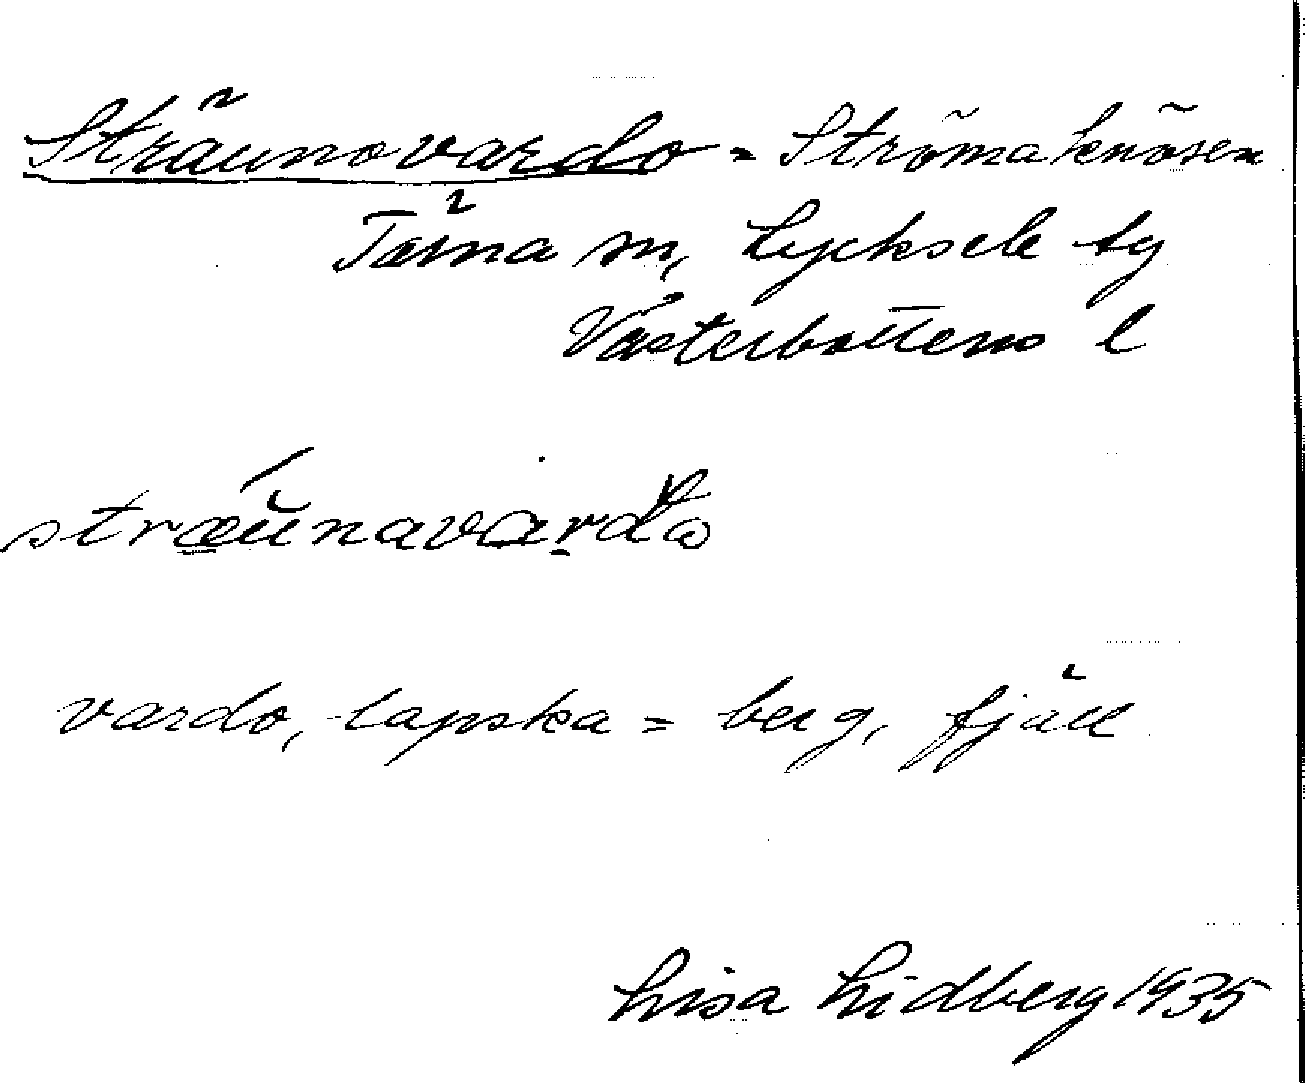 Sträunovardo = Strömaknösen
Tärna sn, Lycksele tg
Västerbottens l
vardo, lapska = berg, fjäll
Lisa Lidberg 1935